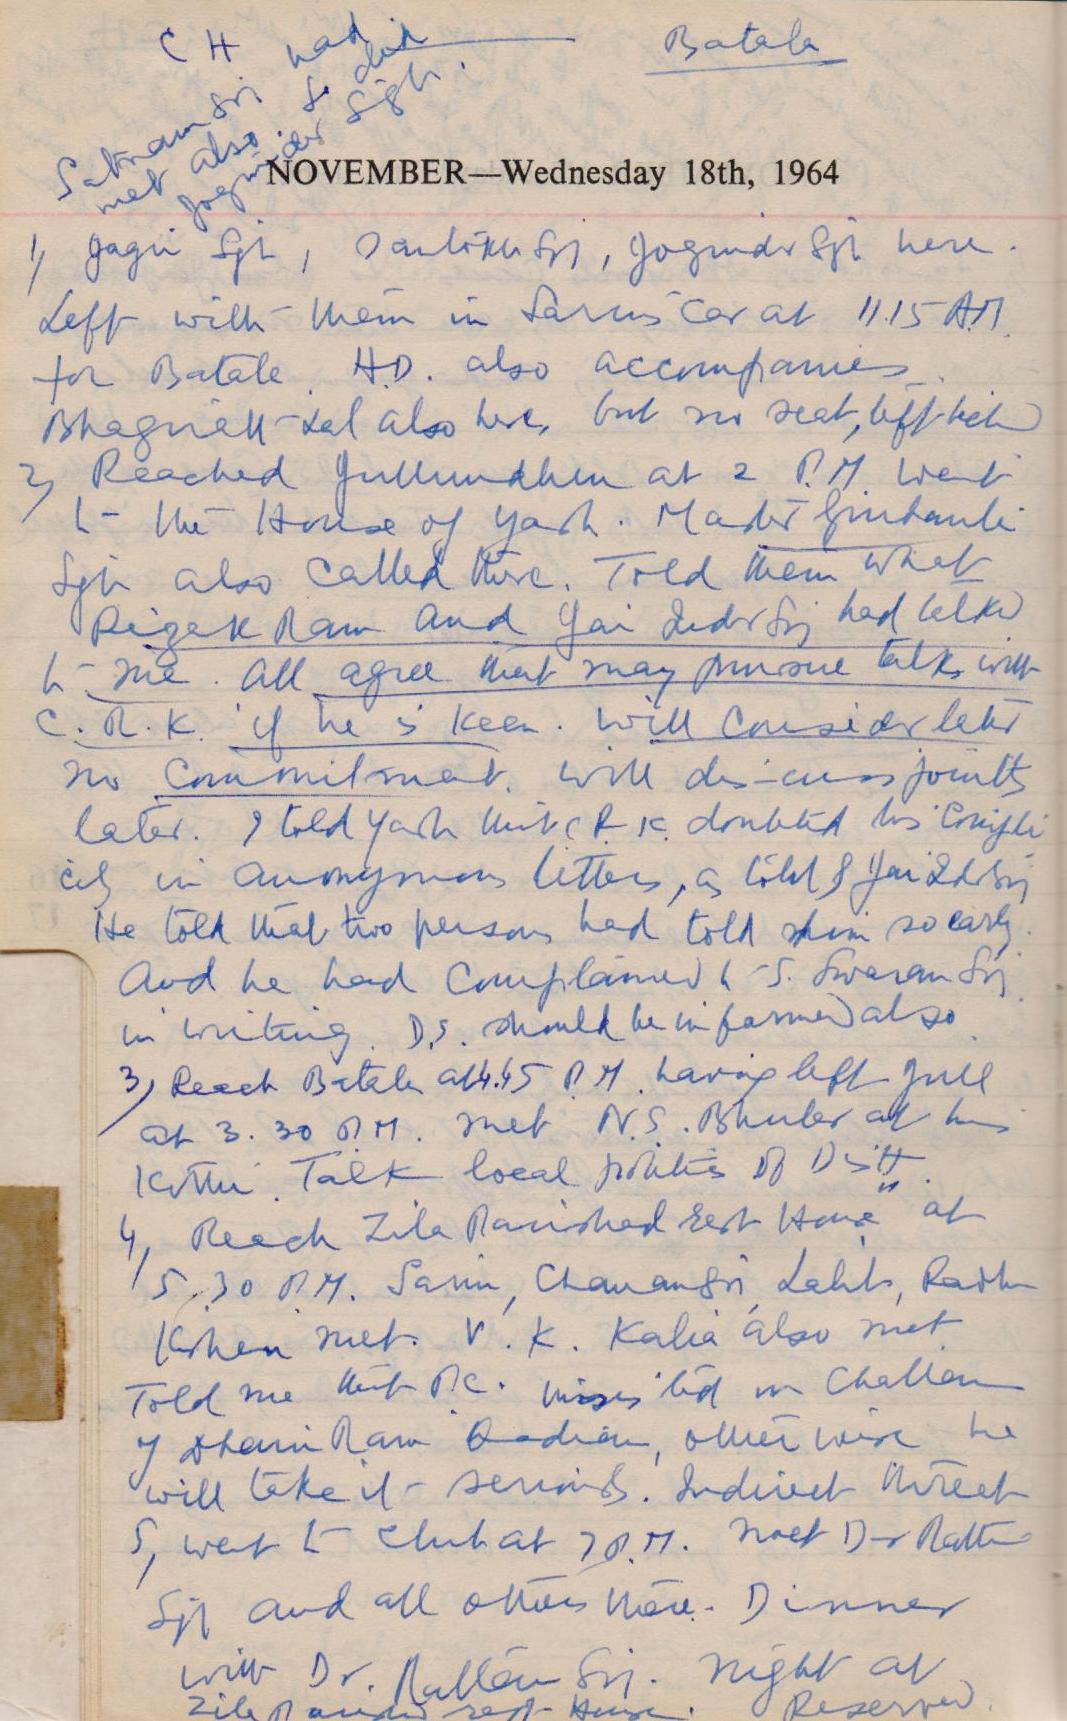 CH had Batala
Satnam Sgh so did
met also
Joginder Sgh.
NOVEMBER—Wednesday 18th, 1964
1, Jagir Sgh, Santokh Sgh, Joginder Sgh here.
Left with them in Sarin's Car at 11.15 A.M.
for Batala. H.D. also accompanies.
Bhagirath Lal also here, but no seat, left
2, Reached Jullundhur at 2 P.M went
to the House of Yash. Master Gurbanta
Sgh also called there. Told them what
Rizak Ram and Jai Inder Sgh had talked
to me. All agree that may pursue talks with
C.R.K. if he is keen. Will consider later
no commitment. Will discuss jointly
later. I told Yash that C.R.K. doubted his compli
city in anonymous letters, as told by Jai Inder Sgh
He told that two persons had told him so early.
And he had complained to S. Swaran Sgh
in writing. D.S. should be informed also
3, Reach Batala at 4.45 P.M. having left Jull
at 3.30 P.M. met N.S. Bhuler at his
Kothi. Talk local politics of Distt.
4, Reach Zila Parishad Rest House at
5.30 P.M. Sarin, Chanan Sgh, Radha
Kishen met. V.K. Kalia also met
Told me that P.C. in Challan
of Dhani Ram Qadian, otherwise he
will take it seriously. Indirect threat
5, went to Club at 7 P.M. met Dr Rattan
Sgh and all others there. Dinner
with Dr. Rattan Sgh. Night at
Zila Parishad rest House. Reserved.